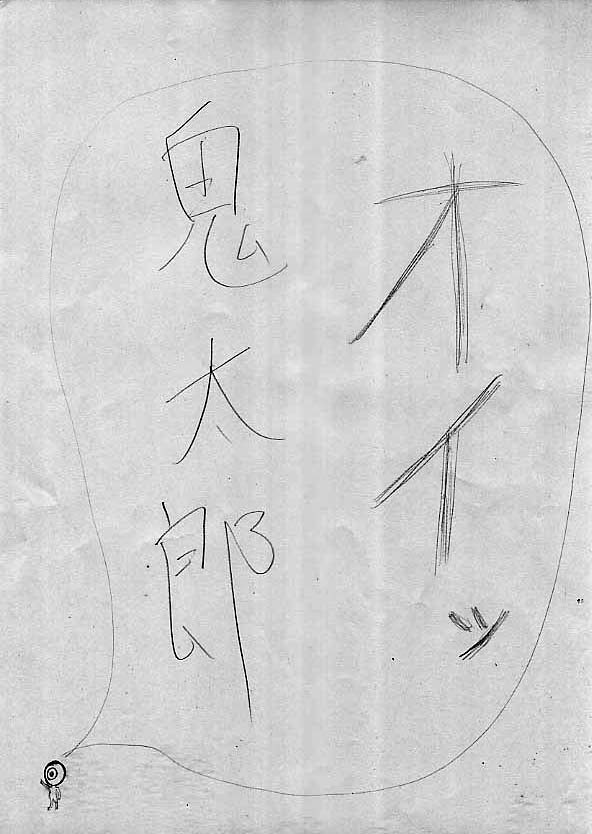 オイッ
鬼太郎